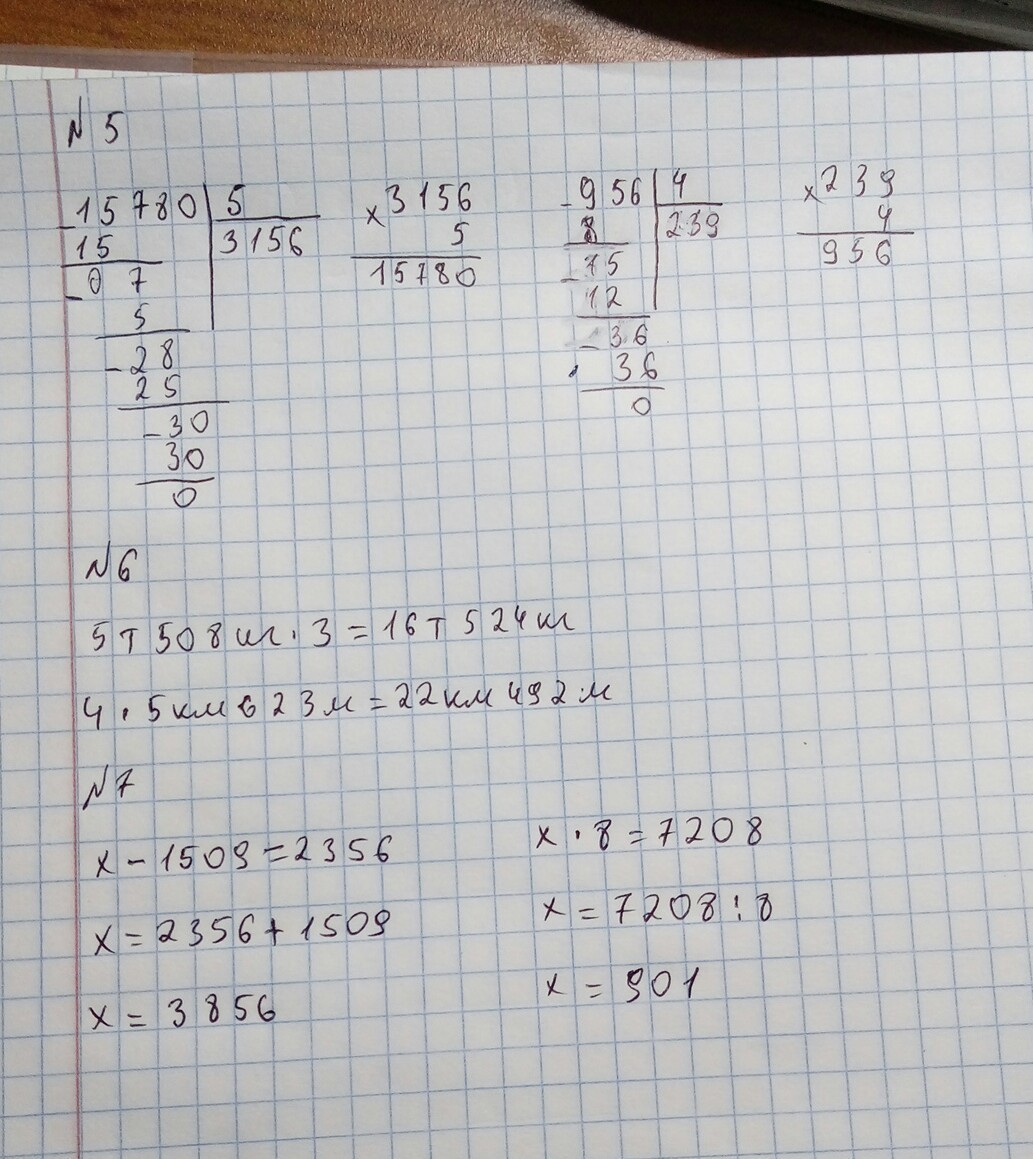 N 5
15780 5
15 3156
0 7
5
28
25
30
30
0
× 3156
5
15780
- 956 4
8 239
- 15
12
- 36
36
0
× 239
4
956
N6
5т 508 кг · 3 = 16т 524 кг
4 · 5км 623м = 22км 492м
N7
x - 1509 = 2356
x = 2356 + 1509
x = 3856
x · 8 = 7208
x = 7208 : 8
x = 901